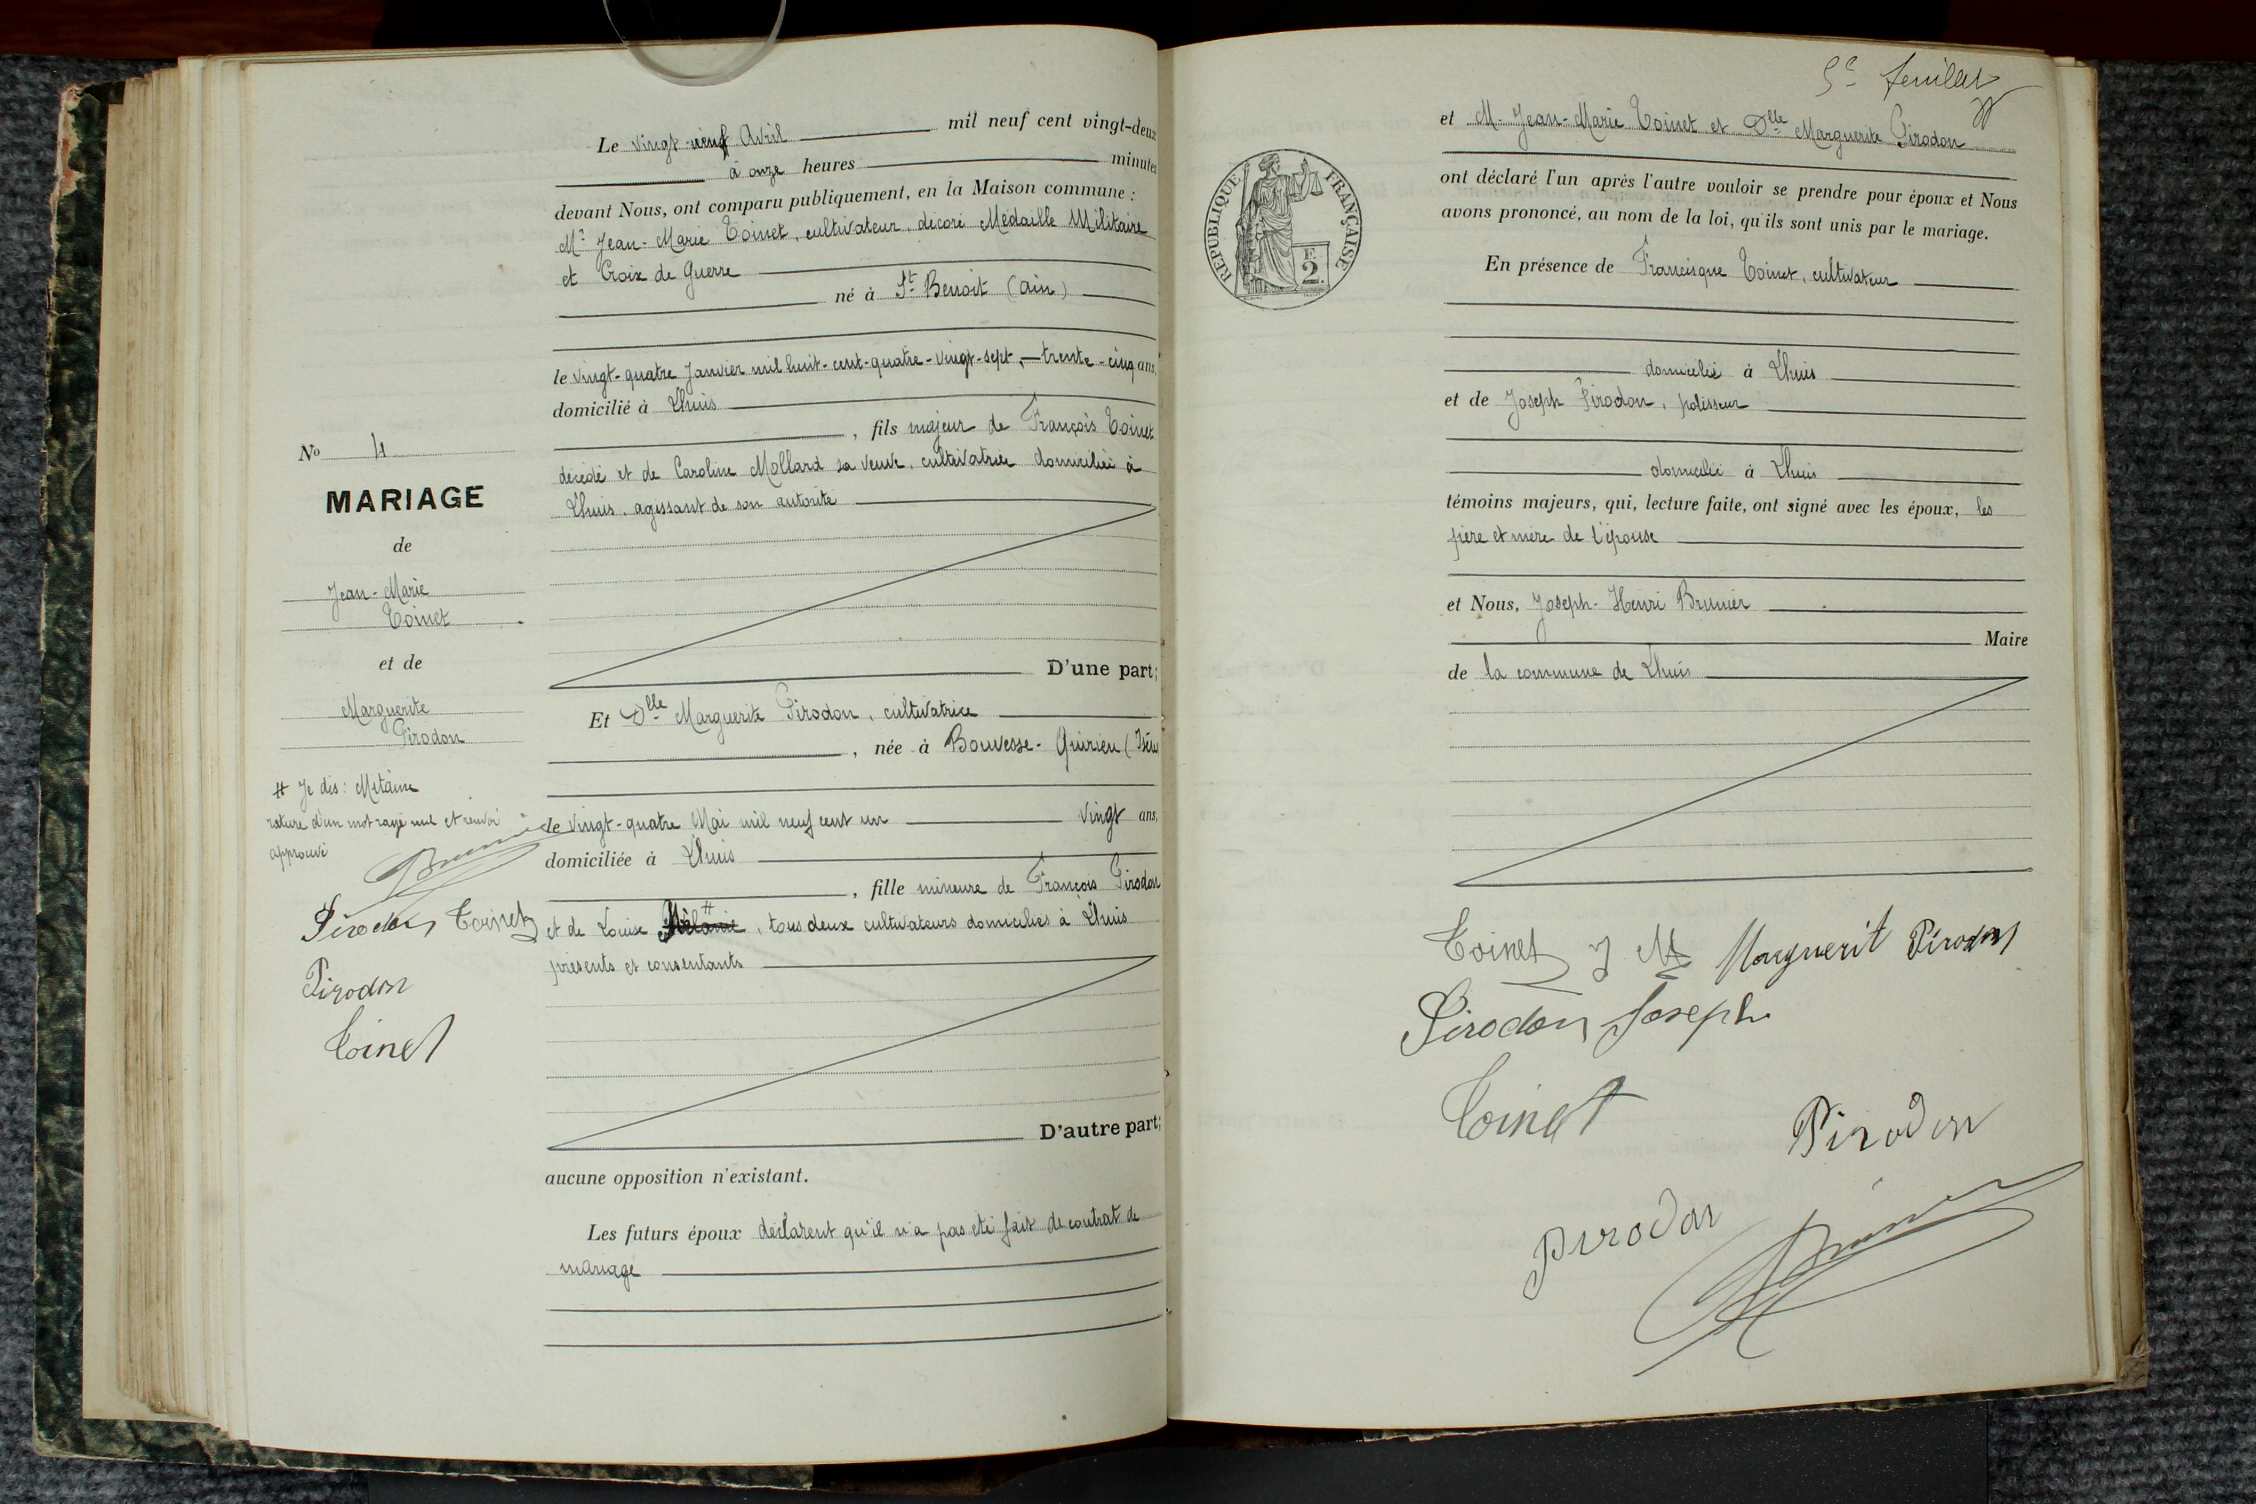 Le vingt-neuf Avril mil neuf cent vingt-deux
à onze heures minutes
devant Nous, ont comparu publiquement, en la Maison commune :
Mr Jean-Marie Toinet, cultivateur, décoré Médaille Militaire
et Croix de Guerre
né à St Benoit (Ain)
le vingt-quatre Janvier mil huit-cent-quatre-vingt-sept, trente-cinq ans,
domicilié à Lhuis
, fils majeur de François Toinet
décédé et de Caroline Mollard sa veuve, cultivatrice domiciliée à
Lhuis, agissant de son autorité
D'une part;
No 4
MARIAGE
de
Jean-Marie
Toinet
et de
Marguerite
Pirodon
# Je dis : Mitaine
rature d'un mot rayé nul et renvoi
approuvé
Brunier
Pirodon Toinet
Pirodon
Toinet
Et Dlle Marguerite Pirodon, cultivatrice
, née à Bouvesse-Quirieu (Isère
le vingt-quatre Mai mil neuf cent un vingt ans,
domiciliée à Lhuis
, fille mineure de François Pirodon
et de Louise Mélanie #, tous deux cultivateurs domiciliés à Lhuis
présents et consentants
D'autre part;
aucune opposition n'existant.
Les futurs époux déclarent qu'il n'a pas été fait de contrat de
mariage
5e feuillet
et M. Jean-Marie Toinet et Dlle Marguerite Pirodon
ont déclaré l'un après l'autre vouloir se prendre pour époux et Nous
avons prononcé, au nom de la loi, qu'ils sont unis par le mariage.
RÉPUBLIQUE FRANÇAISE
F.
2.
En présence de Francisque Toinet, cultivateur
domicilié à Lhuis
et de Joseph Pirodon, polisseur
domicilié à Lhuis
témoins majeurs, qui, lecture faite, ont signé avec les époux, les
père et mère de l'épouse
et Nous, Joseph-Henri Brunier
Maire
de la commune de Lhuis
Toinet J M Marguerit Pirodon
Pirodon Joseph
Toinet
Pirodon
Pirodon
Brunier